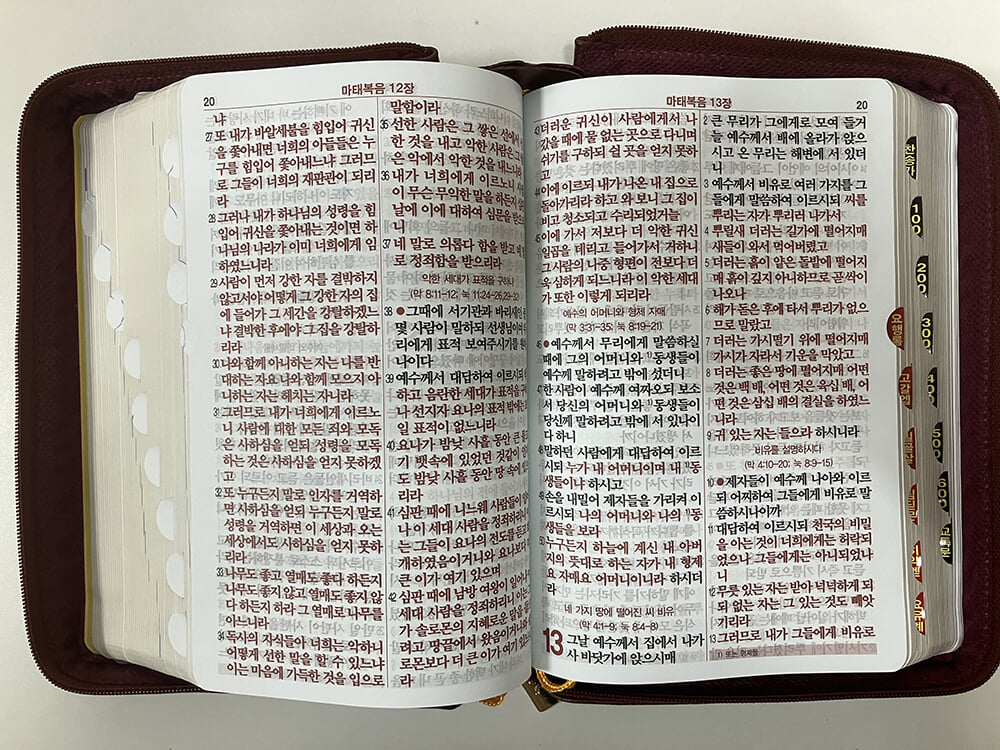 20
마태복음 12장
냐
27 또 내가 바알세불을 힘입어 귀신
을 쫓아내면 너희의 아들들은 누
구를 힘입어 쫓아내느냐 그러므
로 그들이 너희의 재판관이 되리
라
28 그러나 내가 하나님의 성령을 힘
입어 귀신을 쫓아내는 것이면 하
나님의 나라가 이미 너희에게 임
하였느니라
29 사람이 먼저 강한 자를 결박하지
않고서야 어떻게 그 강한 자의 집
에 들어가 그 세간을 강탈하겠느
냐 결박한 후에야 그 집을 강탈하
리라
30 나와 함께 아니하는 자는 나를 반
대하는 자요 나와 함께 모으지 아
니하는 자는 헤치는 자니라
31 그러므로 내가 너희에게 이르노
니 사람에 대한 모든 죄와 모독
은 사하심을 얻되 성령을 모독
하는 것은 사하심을 얻지 못하겠
고
32 또 누구든지 말로 인자를 거역하
면 사하심을 얻되 누구든지 말로
성령을 거역하면 이 세상과 오는
세상에서도 사하심을 얻지 못하
리라
33 나무도 좋고 열매도 좋다 하든지
나무도 좋지 않고 열매도 좋지 않
다 하든지 하라 그 열매로 나무를
아느니라
34 독사의 자식들아 너희는 악하니
어떻게 선한 말을 할 수 있느냐
이는 마음에 가득한 것을 입으로
말함이라
35 선한 사람은 그 쌓은 선에서
한 것을 내고 악한 사람은 그
은 악에서 악한 것을 내느니라
36 내가 너희에게 이르노니
이 무슨 무익한 말을 하든지
날에 이에 대하여 심문을 받으
니
37 네 말로 의롭다 함을 받고 네
로 정죄함을 받으리라
악한 세대가 표적을 구하나
(막 8:11-12; 눅 11:24-26,29-32)
38 ●그때에 서기관과 바리새인
몇 사람이 말하되 선생님이여
리에게 표적 보여주시기를
나이다
39 예수께서 대답하여 이르시되
하고 음란한 세대가 표적을 구
나 선지자 요나의 표적 밖에는
일 표적이 없느니라
40 요나가 밤낮 사흘 동안 큰
기 뱃속에 있었던 것같이
도 밤낮 사흘 동안 땅 속에
리라
41 심판 때에 니느웨 사람들이
나 이 세대 사람을 정죄하리니
는 그들이 요나의 전도를 듣고
개하였음이거니와 요나보다
큰 이가 여기 있으며
42 심판 때에 남방 여왕이 일어나
세대 사람을 정죄하리니 이는
가 솔로몬의 지혜로운 말을
려고 땅끝에서 왔음이거니와
로몬보다 더 큰 이가 여기 있느
라
마태복음 13장
20
43 더러운 귀신이 사람에게서 나
갔을 때에 물 없는 곳으로 다니며
쉬기를 구하되 쉴 곳을 얻지 못하
고
44 이에 이르되 내가 나온 내 집으로
돌아가리라 하고 와 보니 그 집이
비고 청소되고 수리되었거늘
45 이에 가서 저보다 더 악한 귀신
일곱을 데리고 들어가서 거하니
그 사람의 나중 형편이 전보다 더
욱 심하게 되느니라 이 악한 세대
가 또한 이렇게 되리라
예수의 어머니와 형제 자매
(막 3:31-35; 눅 8:19-21)
46 ●예수께서 무리에게 말씀하실
때에 그의 어머니와 1)동생들이
예수께 말하려고 밖에 섰더니
47 한 사람이 예수께 여짜오되 보소
서 당신의 어머니와 1)동생들이
당신께 말하려고 밖에 서 있나이
다 하니
48 말하던 사람에게 대답하여 이르
시되 누가 내 어머니이며 내 1)동
생들이냐 하시고
49 손을 내밀어 제자들을 가리켜 이
르시되 나의 어머니와 나의 1)동
생들을 보라
50 누구든지 하늘에 계신 내 아버
지의 뜻대로 하는 자가 내 형제
요 자매요 어머니이니라 하시더
라
네 가지 땅에 떨어진 씨 비유
(막 4:1-9; 눅 8:4-8)
13 그날 예수께서 집에서 나가
사 바닷가에 앉으시매
2 큰 무리가 그에게로 모여 들거
늘 예수께서 배에 올라가 앉으
시고 온 무리는 해변에 서 있더
니
3 예수께서 비유로 여러 가지를 그
들에게 말씀하여 이르시되 씨를
뿌리는 자가 뿌리러 나가서
4 뿌릴새 더러는 길가에 떨어지매
새들이 와서 먹어버렸고
5 더러는 흙이 얕은 돌밭에 떨어지
매 흙이 깊지 아니하므로 곧 싹이
나오나
6 해가 돋은 후에 타서 뿌리가 없으
므로 말랐고
7 더러는 가시떨기 위에 떨어지매
가시가 자라서 기운을 막았고
8 더러는 좋은 땅에 떨어지매 어떤
것은 백 배, 어떤 것은 육십 배, 어
떤 것은 삼십 배의 결실을 하였느
니라
9 귀 있는 자는 들으라 하시니라
비유를 설명하시다
(막 4:10-20; 눅 8:9-15)
10 ●제자들이 예수께 나아와 이르
되 어찌하여 그들에게 비유로 말
씀하시나이까
11 대답하여 이르시되 천국의 비밀
을 아는 것이 너희에게는 허락되
었으나 그들에게는 아니되었나
니
12 무릇 있는 자는 받아 넉넉하게 되
되 없는 자는 그 있는 것도 빼앗
기리라
13 그러므로 내가 그들에게 비유로
1) 또는 형제들
찬송가
100
200
300
400
500
600
교독문
요행롬
고갈엡